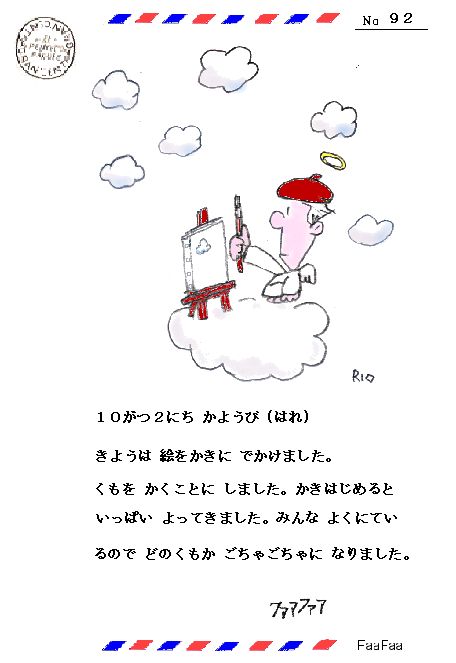 No 92
RIO
10がつ2にち かようび (はれ)
きようは 絵をかきに でかけました。
くもを かくことに しました。かきはじめると
いっぱい よってきました。みんな よくにてい
るので どのくもか ごちゃごちゃに なりました。
ファアファア
FaaFaa